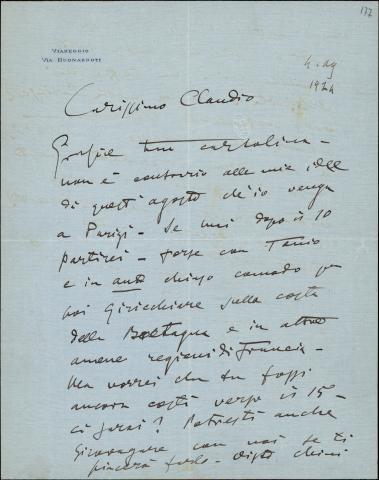 177
VIAREGGIO
VIA BUONARROTI
4. ag
1924
Carissimo Claudio
Grazie tua cartolina -
non è contrario alle mie idee
di quest'agosto ch'io venga
a Parigi - Se mai dopo il 10
partirei - forse con Tonio
e in auto chiuso comodo per
poi giricchiare sulla costa
della Bretagna e in altre
amene regioni di Francia -
Ma vorrei che tu fossi
ancora costì verso il 15 -
ci sarai? Potresti anche
girovagare con noi se ti
piacerà farlo - visto